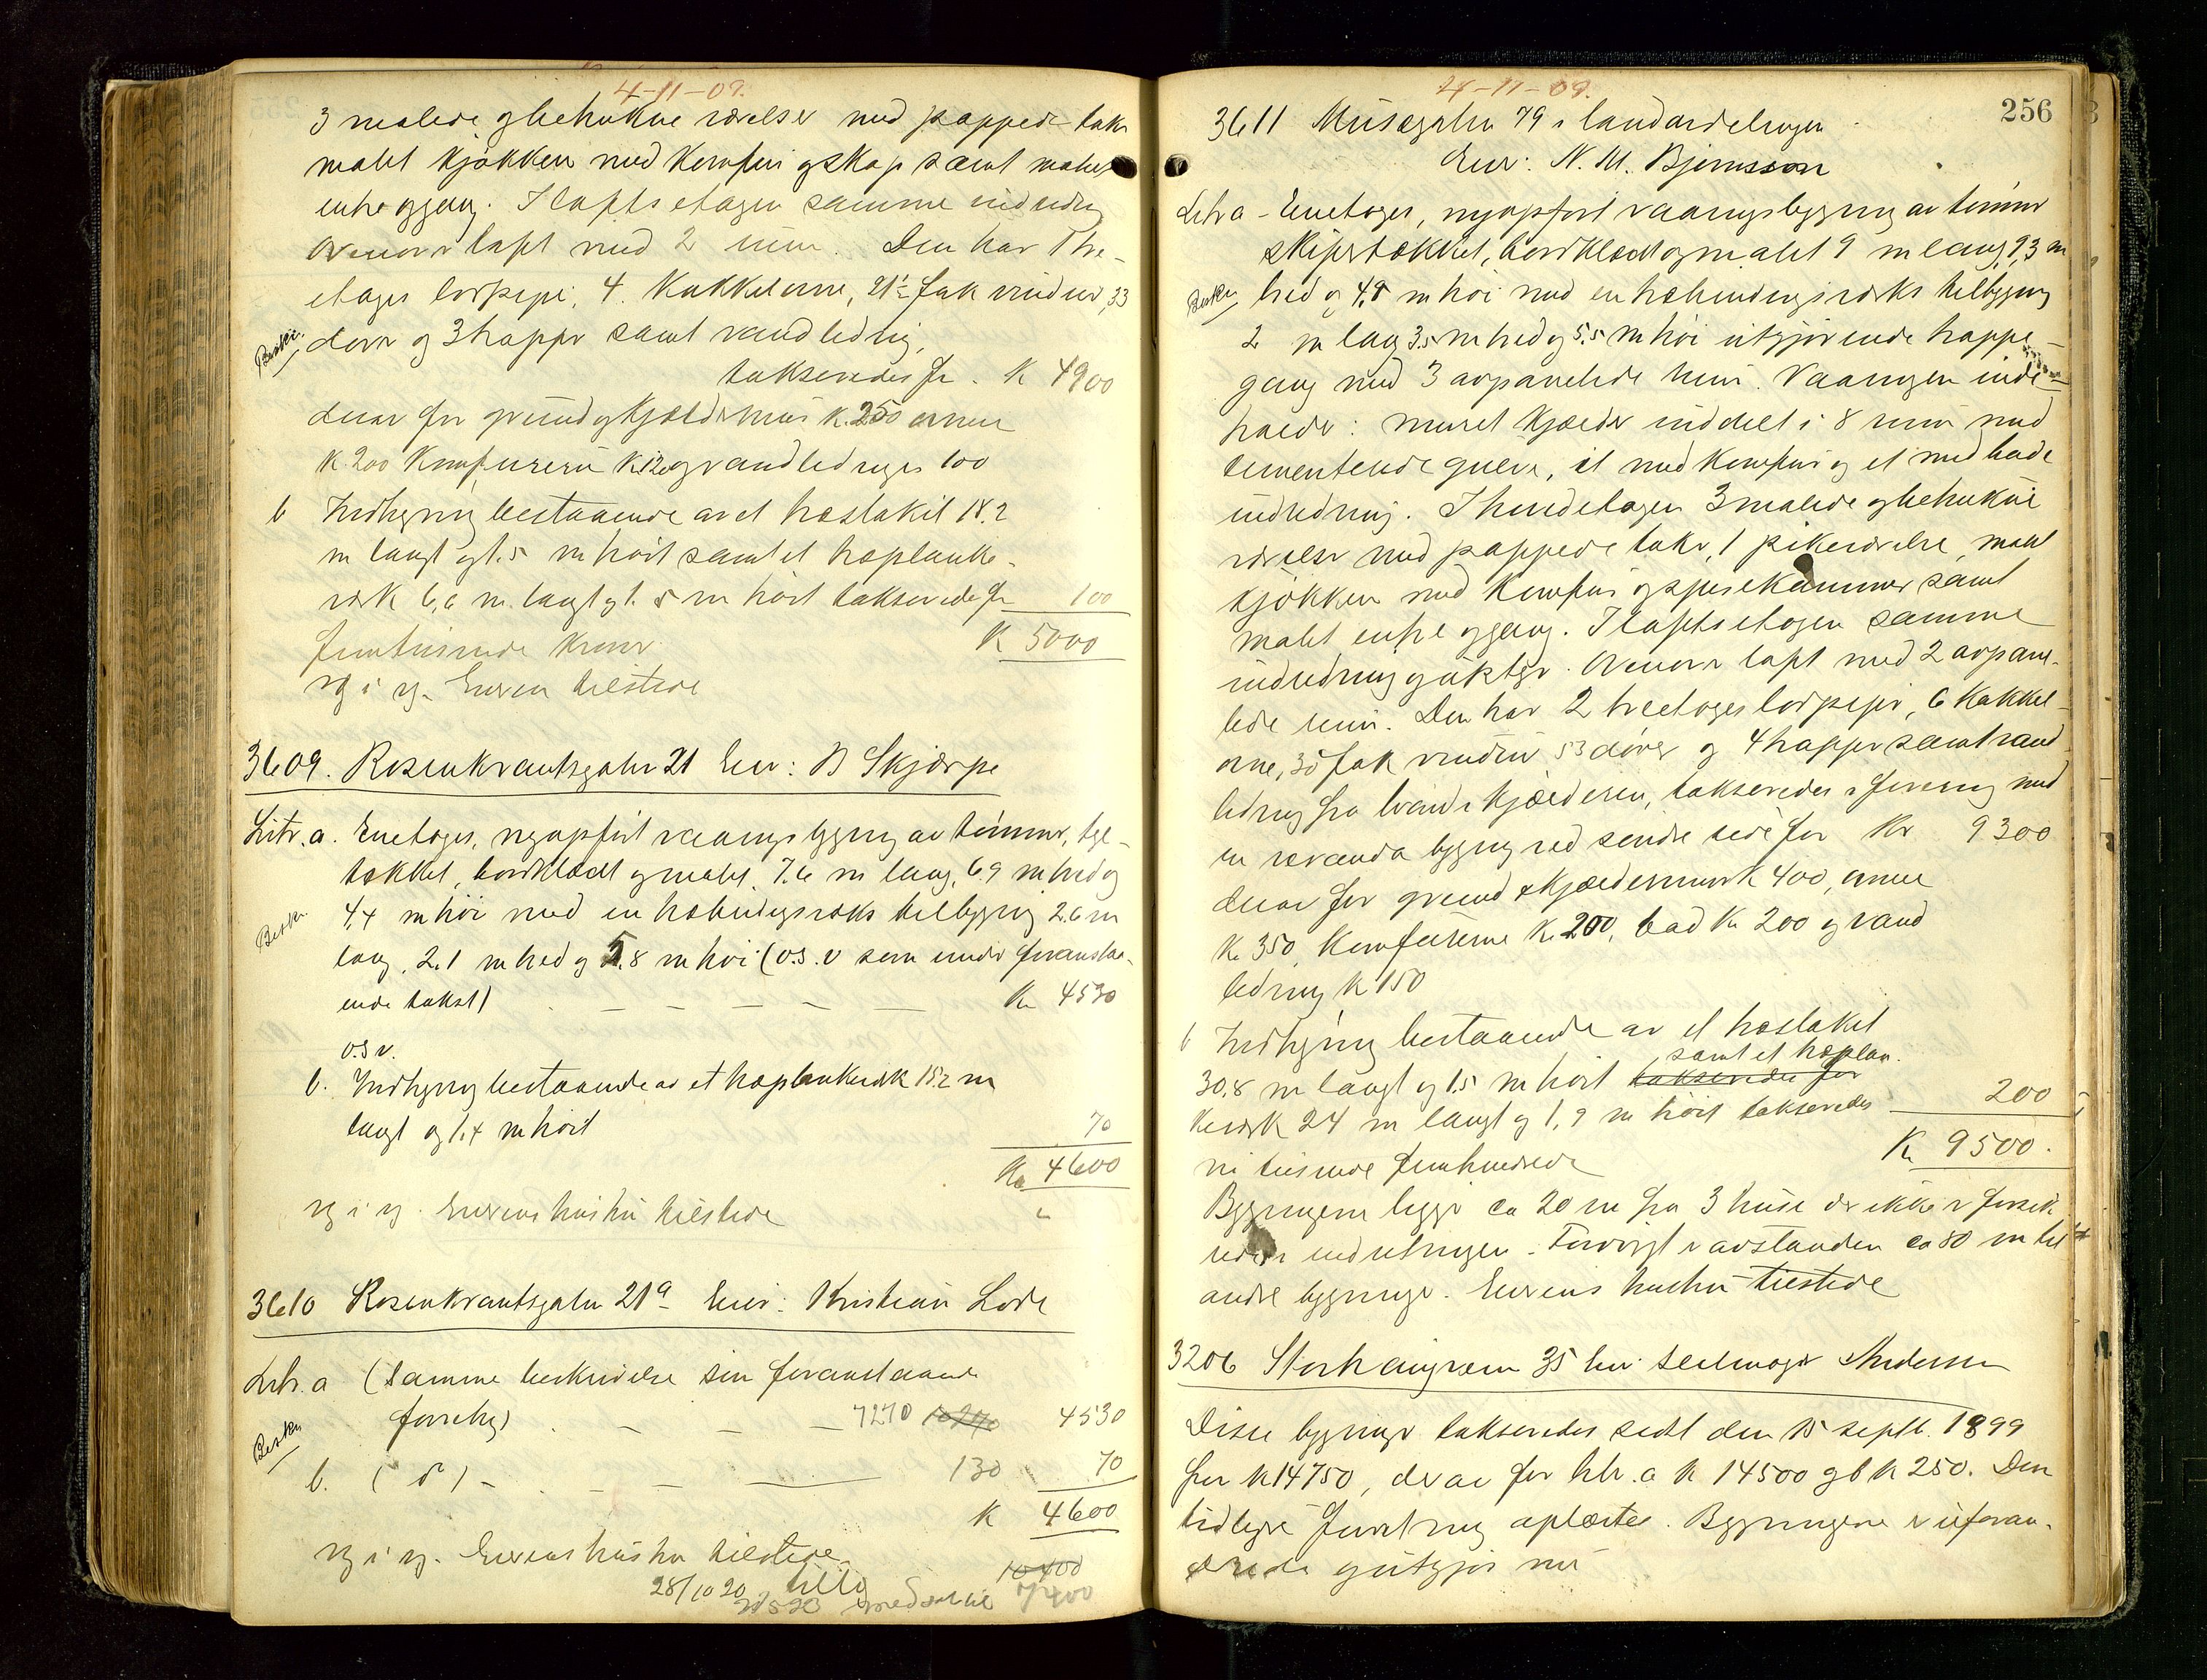 4-11-09.
3 malede og betrukne værelser med pappede take
malet kjøkken med komfur og skap samt malet
entre og gang. I loftsetagen samme indredning
Ovenover loft med 2 rum. Den har 1 tre-
etages lorpipe, 4 kakkelovne, 21½ fak vinduer, 33
Beskr.
dører og 3 trapper samt vandledning,
takseredes for. K 4900
derav for grund og kjældermur K. 250 ovnene
K. 200 Komfurerne K. 120 og vandledninger 100
b Indhegning bestaaende av et træstakit 18.2
m langt og 1.5 m høit samt et træplanke-
værk 6,6 m. langt og 1.5 m høit takseredes for 100
K 5000
femtusinde kroner
Eieren tilstede
3609. Rosenkrantsgaten 21 Eier: B Skjørpe
Litr. a. Enetages, nyopført vaaningsbygning av tømmer, tegl-
tækket, bordklædt og malet, 7.6 m lang, 6.9 m bred og
Beskr.
4,4 m høi med en træbindingsværks tilbygning 2.6 m
lang, 2.1 m bred og 5.8 m høi (o.s.v som under foranstaa-
ende takst) - - - - Kr 4530
o.s.v.
b. Indhegning bestaaende av et træplankeværk 15.2 m
langt og 1.4 m høit 70
Kr 4600
Eierens hustru tilstede
3610 Rosenkrantsgaten 21a - Eier: Kristian Lode
Litr. a (Samme beskrivelse som foranstaaende
Beskr
forretn) - - - 7270 10270 4530
b. (do) - - - 130 70
K 4600
Eierens hustru tilstede.
10400
28/10 20 tillæg
7400
4-11-09. 256
3611 Musegaten 79 i landavdelingen
Eier: N. M. Bjørnsson
Litr a - Enetages, nyopført vaaningsbygning av tømmer
skifertækket, bordklædt og malet 9 m lang, 9,3 m
Beskr.
bred og 4,8 m høi med en træbindingsværks tilbygning
2 m lang 3.5 m bred og 5.5 m høi utgjørende trappe-
gang med 3 avpanelede rum. Vaaningen inde-
holder: muret kjælder inddelt i 8 rum med
cementerede gulve, et med komfur og et med bade
indredning. I hovedetagen 3 malede og betrukne
værelser med pappede take, 1 pikeværelse, malet
kjøkken med komfur og spisekammer samt
malet entre og gang. I loftsetagen samme
indredning og altan. Ovenover loft med 2 avpane-
lede rum. Den har 2 treetages lorpiper, 6 kakkel-
ovne, 35 fak vinduer 53 dører og 4 trapper samt vand
ledning fra brønd i kjælderen, takseredes i forening med
en veranda bygning ved søndre side for Kr 9300
derav for grund & kjældermur K 400, ovnene
Kr. 350, Komfurerne Kr. 200, bad Kr 200 og vand
ledning K 150
b Indhegning bestaaende av et træstakit
samt et træplan-
30,8 m langt og 1.5 m høit takseredes for
keværk 24 m langt og 1,9 m høit takseredes 200
K 9500.
ni tusinde femhundrede
Bygningerne ligger ca 20 m fra 3 huse der ikke er forsik
ret i indretningen. Forøvrigt er avstanden ca 80 m til
andre bygninger. Eierens hustru tilstede
3206 Storhaugveien 35 Eier: seilmager Andersen
Disse bygninger takseredes sidst den 15 septb. 1899
for K 14750, derav for litr. a K 14500 og b K 250. Den
tidligere forretning oplæstes. Bygningerne er uforan-
drede og utgjør nu